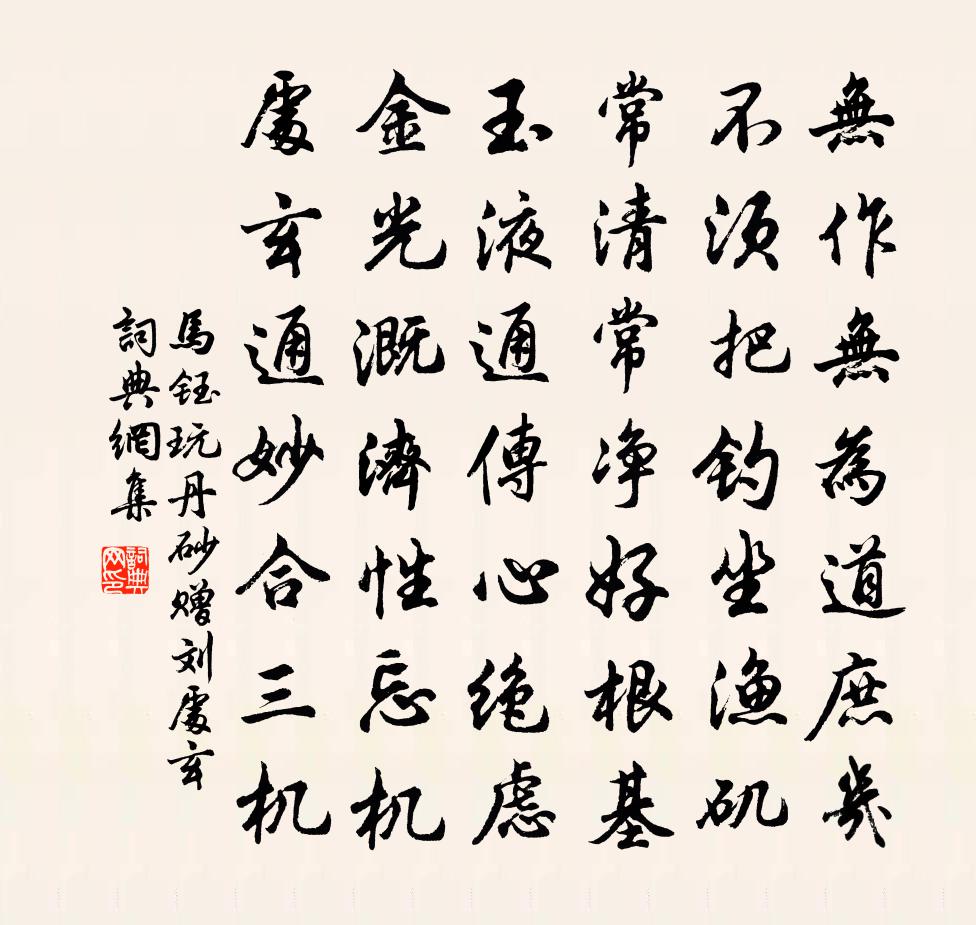 無作無為道庶幾
不須把鈎坐漁矶
常清常净好根基
玉液通傳心絶慮
金光溉濟性忘机
處玄通妙合三机
馬鈺玩丹砂赠刘處玄
詞典網集
詞典網印